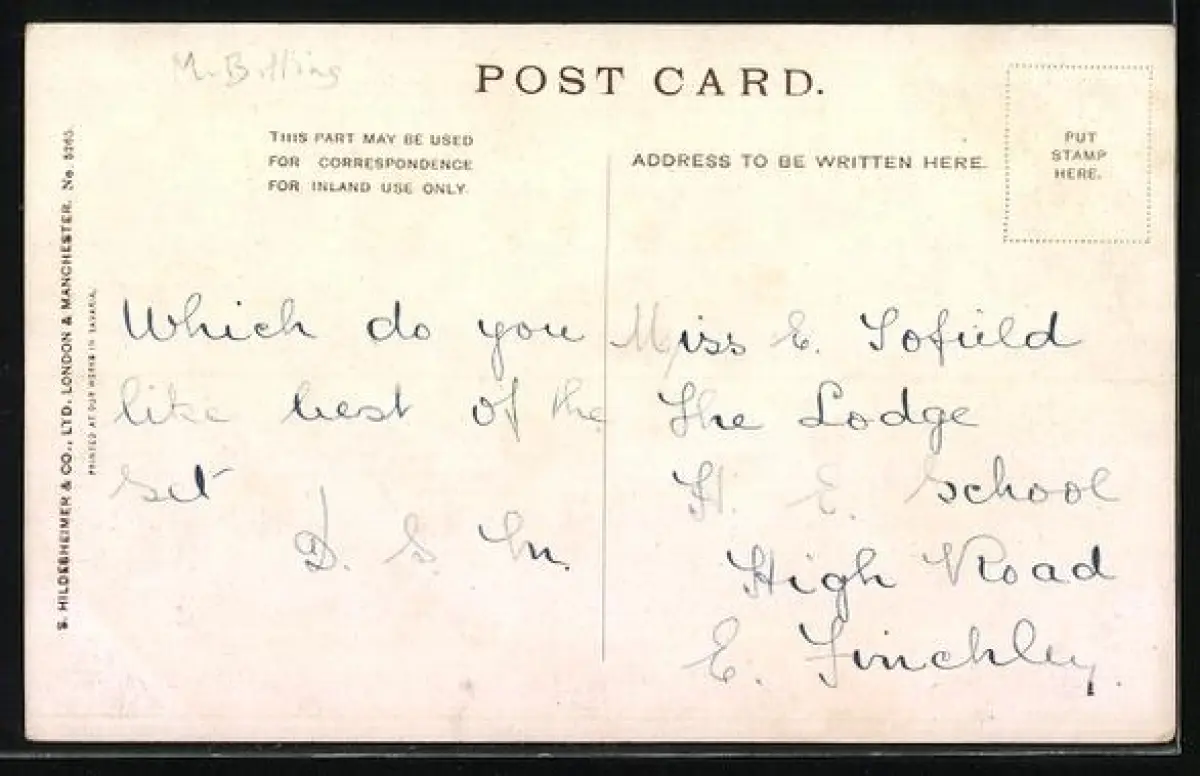 Mr Billing
POST CARD.
THIS PART MAY BE USED
FOR CORRESPONDENCE
FOR INLAND USE ONLY.
ADDRESS TO BE WRITTEN HERE.
PUT
STAMP
HERE.
S. HILDESHEIMER & CO., LTD. LONDON & MANCHESTER. No. 5265.
PRINTED AT OUR WORKS IN BAVARIA.
Which do you
like best of the
set
D. S. M.
Miss E. Tofield
The Lodge
H. E. School
High Road
E. Finchley.